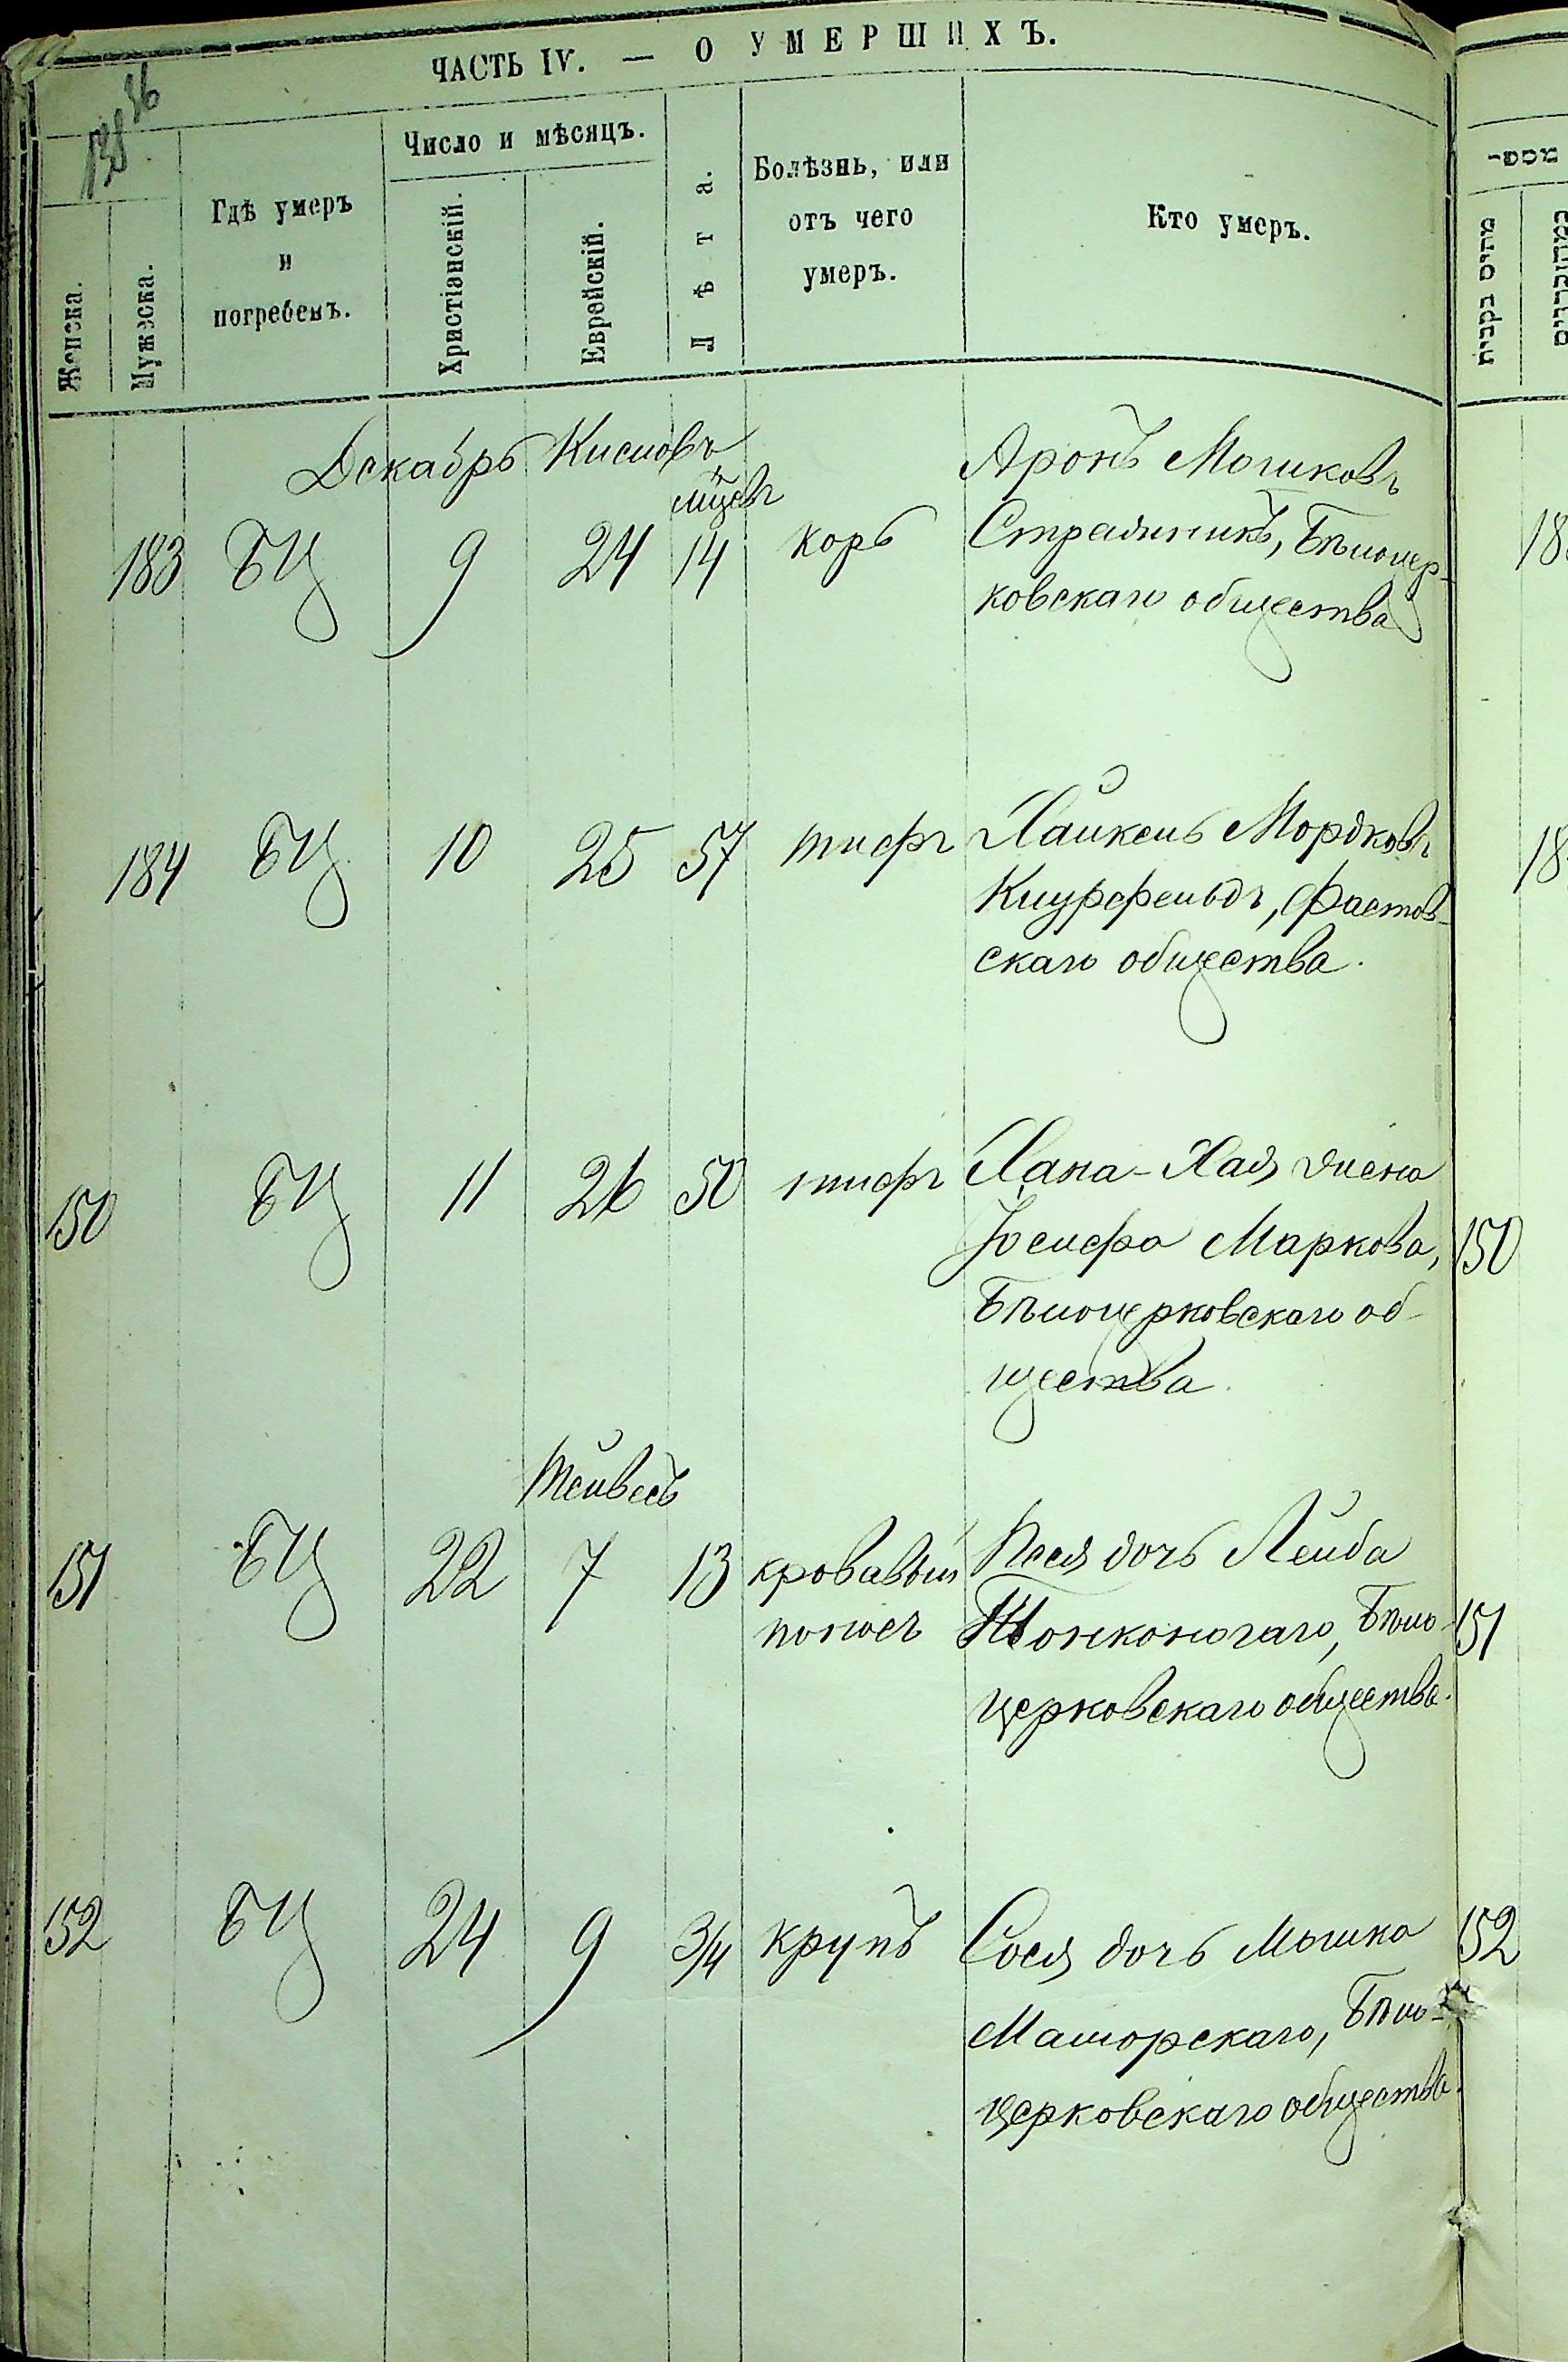 ЧАСТЬ IV. — О УМЕРШИХЪ.
138 56
Женска.
Мужеска.
Гдѣ умеръ
и
погребенъ.
Число и мѣсяцъ.
Христіанскій.
Еврейскій.
Лѣта.
Болѣзнь, или
отъ чего
умеръ.
Кто умеръ.
Декабрь Кислевъ
мцевъ
183 БЦ 9 24 14 корь
Аронъ Мошковъ
Стражникъ, Бѣлоцер-
ковскаго общества
184 БЦ 10 25 57 тифъ
Хайкель Мордковъ
Кнурфельдъ, Фастов-
скаго общества.
150 БЦ 11 26 50 тифъ
Хана-Хая жена
Іосифа Маркова,
Бѣлоцерковскаго об-
щества.
Тейвесъ
151 БЦ 22 7 13 кровавый
поносъ
Песя дочь Лейба
Тонконогаго, Бѣло-
церковскаго общества.
152 БЦ 24 9 3/4 крупъ
Сося дочь Мошка
Маморскаго, Бѣло-
церковскаго общества.
מספר
מהים בקבית
18
18
150
151
152